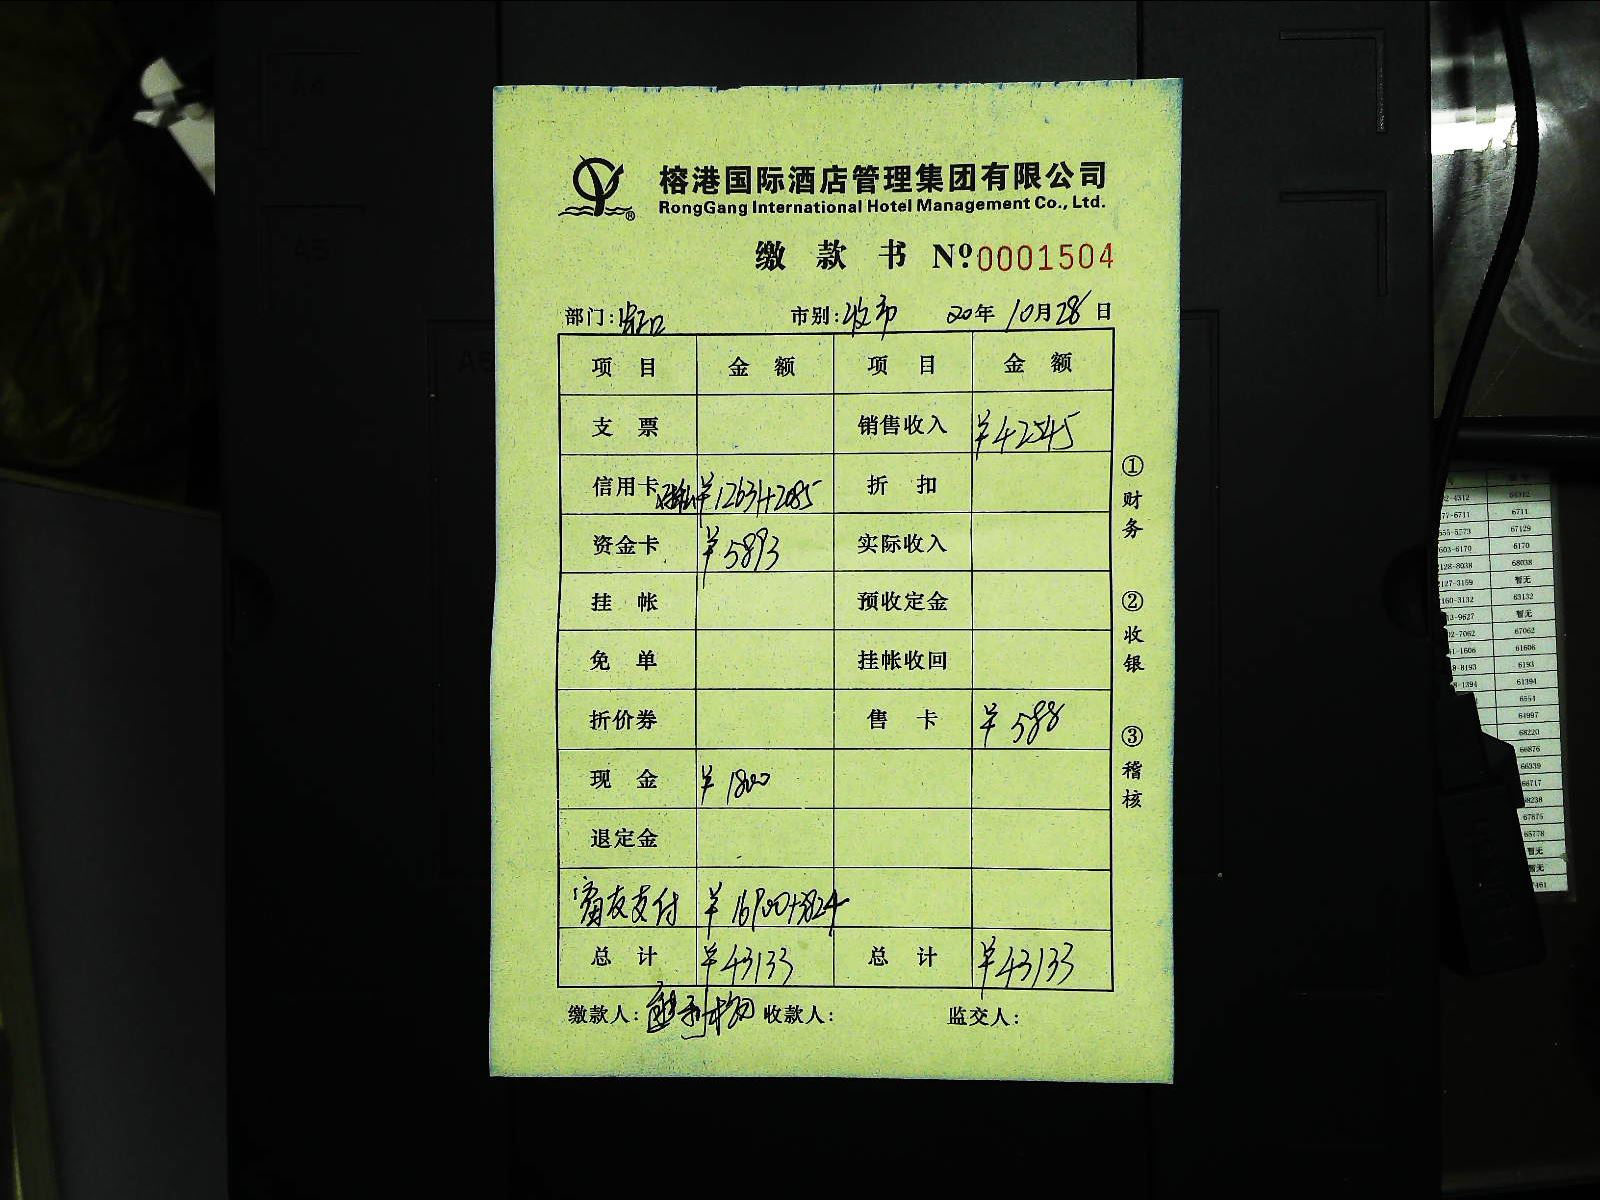 榕港国际酒店管理集团有限公司
RongGang International Hotel Management Co., Ltd.
缴款书 Nº0001504
部门: 市别:收市 20年10月28日
项目 金额 项目 金额
支票 销售收入 ¥42545
信用卡 ¥12631+2085 折扣
资金卡 ¥5893 实际收入
挂帐 预收定金
免单 挂帐收回
折价券 售卡 ¥588
现金 ¥1800
退定金
富友支付 ¥16900+3824
总计 ¥43133 总计 ¥43133
缴款人: 收款人: 监交人:
①财务
②收银
③稽核
6711
67129
6170
68038
暂无
63132
暂无
67062
61606
6193
61394
6554
64997
68220
66876
66339